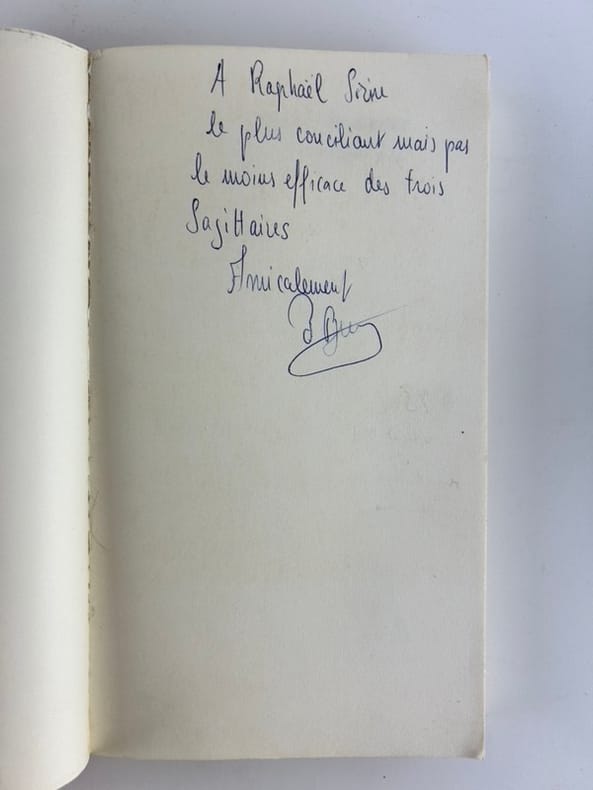 A Raphaël Sirne
le plus conciliant mais pas
le moins efficace des trois
Sagittaires
Amicalement